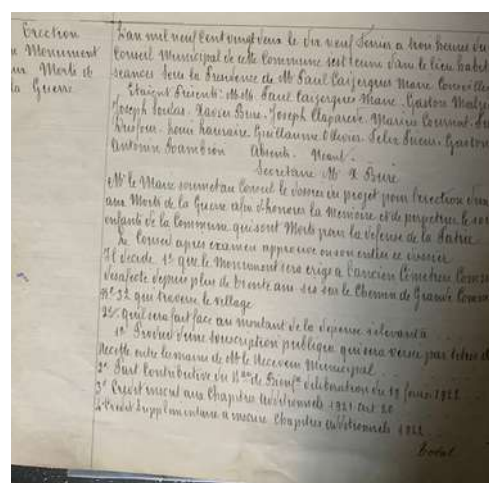 Erection
Monument
Morts de
la Guerre
L'an mil neuf cent vingt deux le dix neuf Fevrier a trois heures du
Conseil Municipal de cette Commune s'est reuni dans le lieu habit
seances sous la Presidence de M Paul Caizergues Maire Conseiller
Etaient Presents: M.M. Paul Caizergues Maire. Gaston
Joseph Soulas. Xavier Bire. Joseph Claparede. Marius
Louis Guillaume Ollivier. Felix Gaston
Antonin Absents. Neant.
Secretaire M X Bire
Mr le Maire soumet au Conseil le dossier du projet pour l'erection d'un
aux Morts de la Guerre afin d'honorer la Memoire et de perpetuer le
enfants de la Commune qui sont Morts pour la defense de la Patrie
Le Conseil apres examen approuve en son entier ce dossier
Il decide 1° que le Monument sera erige a l'ancien Cimetiere
desafecte depuis plus de trente ans sis sur le Chemin de Grande
N° 32 qui traverse le village
2° qu'il sera fait face au montant de la depense s'elevant a
1° Produit d'une souscription publique qui sera versee par
Recette entre les mains de M le Receveur Municipal
2° Part Contributive du deliberation du 19 1922
3° Credit inscrit aux Chapitres Additionnels 1921 art 20
4° Credit Supplementaire a inscrire Chapitres Additionnels 1922
Total